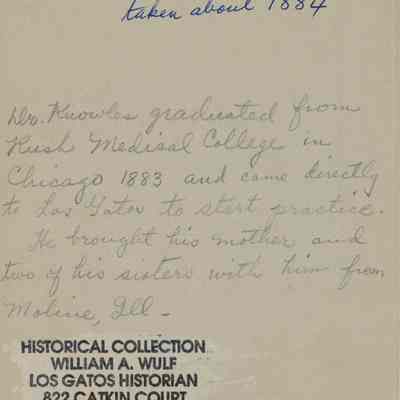 taken about 1884
Dr. Knowles graduated from
Rush Medical College in
Chicago 1883 and came directly
to Los Gatos to start practice.
He brought his mother and
two of his sisters with him from
Moline, Ill -
HISTORICAL COLLECTION
WILLIAM A. WULF
LOS GATOS HISTORIAN
822 CATKIN COURT